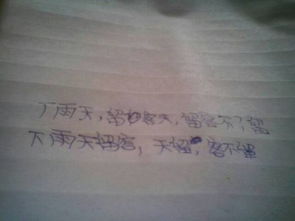 下雨天，留客天，留客不？留
下雨天留客，天留，客不留